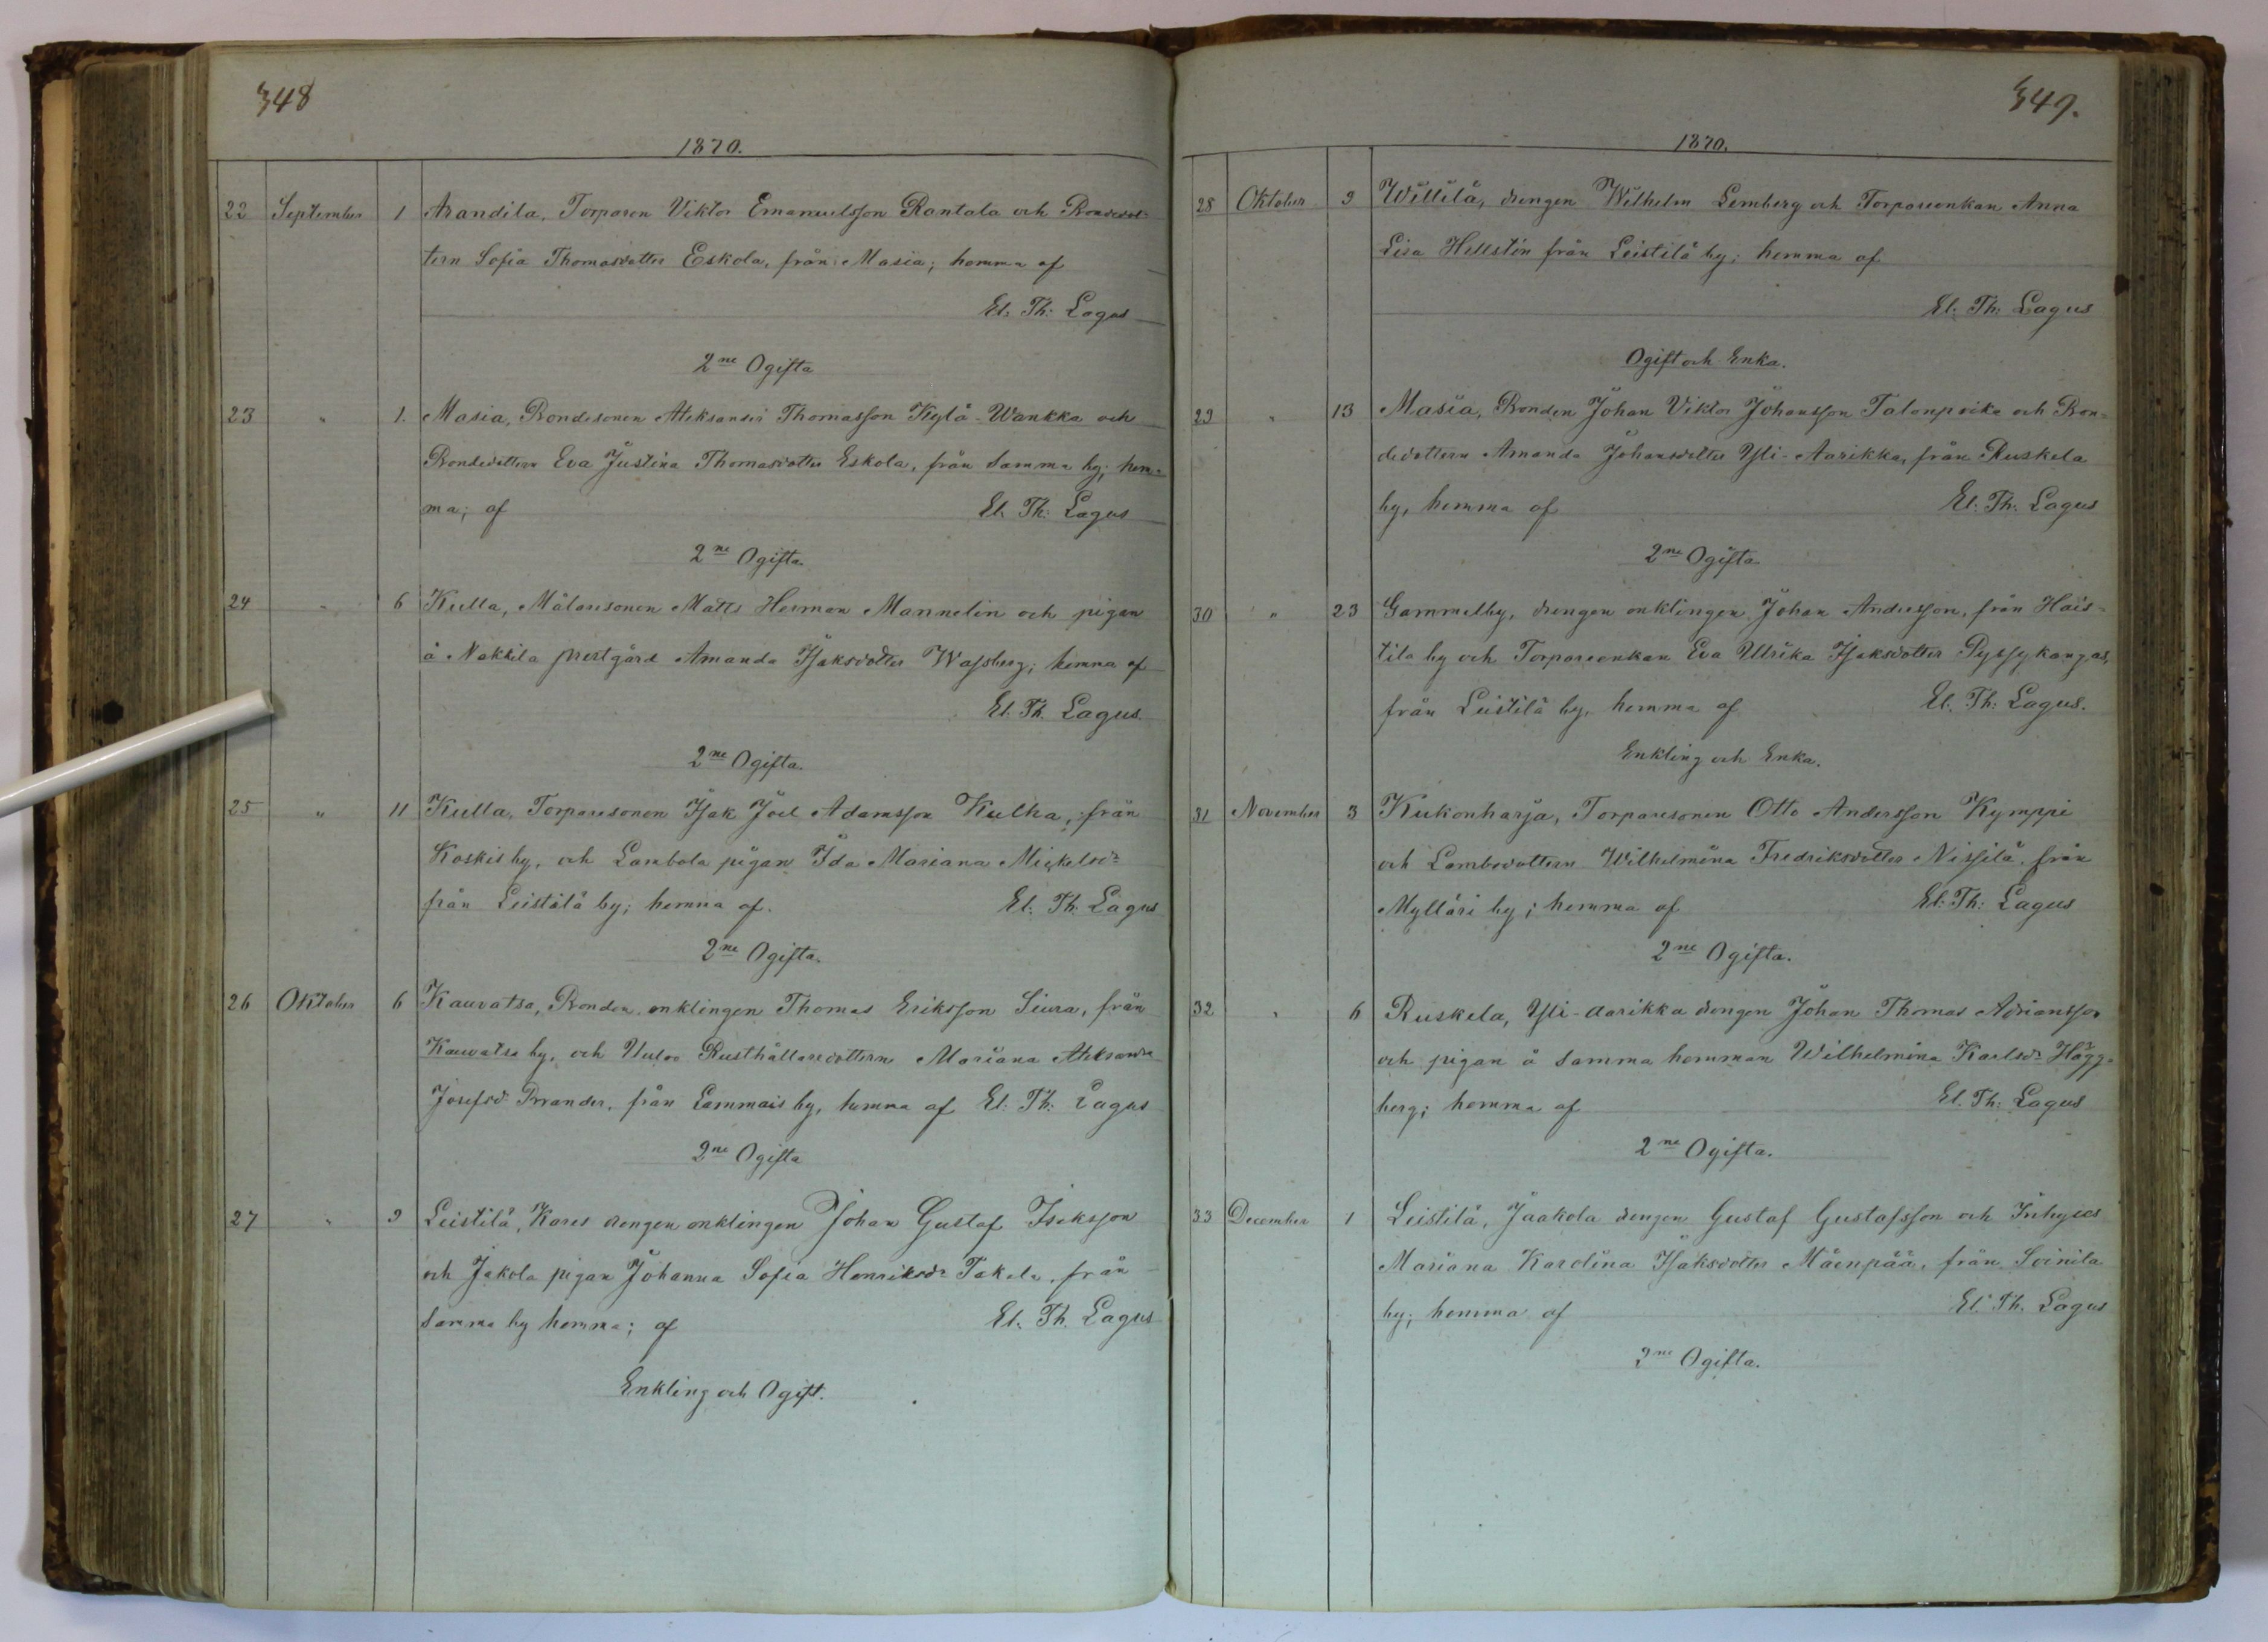 348
1870.
22 September 1 Arandila, Torparen Viktor Emanuelsson Rantala och Bondedot-
tern Sofia Thomasdotter Eskola, från Masia; hemma af
El. Th. Lagus
2ne Ogifta
23 " 1. Masia, Bondesonen Aleksander Thomasson Kylä-Wankka och
Bondedottern Eva Justina Thomasdotter Eskola, från samma by, hem-
ma; af El. Th. Lagus
2ne Ogifta.
24 " 6 Kulla, Målaresonen Matts Herman Mannelin och pigan
å Nakkila prestgård Amanda Isaksdotter Wassberg; hemma af
El. Th. Lagus.
2ne Ogifta.
25 " 11 Kulla, Torparesonen Isak Joel Adamsson Kulha, från
Koskis by, och Lambola pigan Ida Mariana Mickelsdr
från Leistilä by; hemma af. El. Th. Lagus
2ne Ogifta.
26 Oktober 6 Kauvatsa, Bonden, enklingen Thomas Eriksson Siura, från
Kauvatsa by, och Rusthållaredottern Mariana Aleksandra
Josefsd. från Lammais by, hemma af El. Th. Lagus
2ne Ogifta
27 " 9 Leistilä, Kares drengen enklingen Johan Gustaf Isaksson
och Jakola pigan Johanna Sofia Henriksdr Takala, från
samma by hemma; af El. Th. Lagus
Enkling och Ogift.
349.
1870.
28 Oktober 9 Willilä, drengen Wilhelm Lemberg och Torpareenkan Anna
Lisa Hellstén från Leistilä by; hemma af
El. Th. Lagus
Ogift och Enka.
29 " 13 Masia, Bonden Johan Viktor Johansson Talonpoika och Bon-
dedottern Amanda Johansdotter Yli-Aarikka, från Ruskela
by, hemma af El. Th. Lagus
2ne Ogifta
30 " 23 Gammelby, drengen enklingen Johan Andersson, från Hais-
tila by och Torpareenkan Eva Ulrika Isaksdotter Pyssykangas,
från Leistilä by, hemma af El. Th. Lagus.
Enkling och Enka.
31 November 3 Kukonharja, Torparesonen Otto Andersson Kymppi
och Lambsdottern Wilhelmina Fredriksdotter Nissilä, från
Mylläri by; hemma af El. Th. Lagus
2ne Ogifta.
32 " 6 Ruskela, Yli-Aarikka drengen Johan Thomas Adriansson
och pigan å samma hemman Wilhelmina Karlsdr Hägg-
berg; hemma af El. Th. Lagus
2ne Ogifta.
33 December 1 Leistilä, Jaakola drengen Gustaf Gustafsson och Inhyses
Mariana Karolina Isaksdotter Mäenpää, från Soinila
by; hemma af El. Th. Lagus
2ne Ogifta.